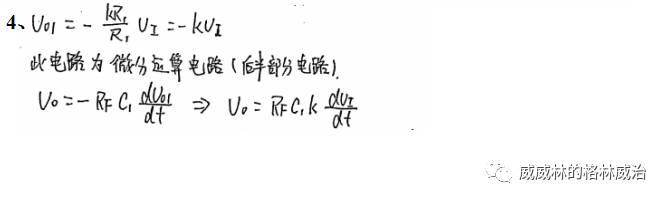 4、U₀₁ = - kR₁/R₁ U_I = -kU_I
此电路为微分运算电路(后半部分电路).
U₀ = -R_F C₁ dU₀₁/dt ⇒ U₀ = R_F C₁ k dU_I/dt
威威林的格林威治